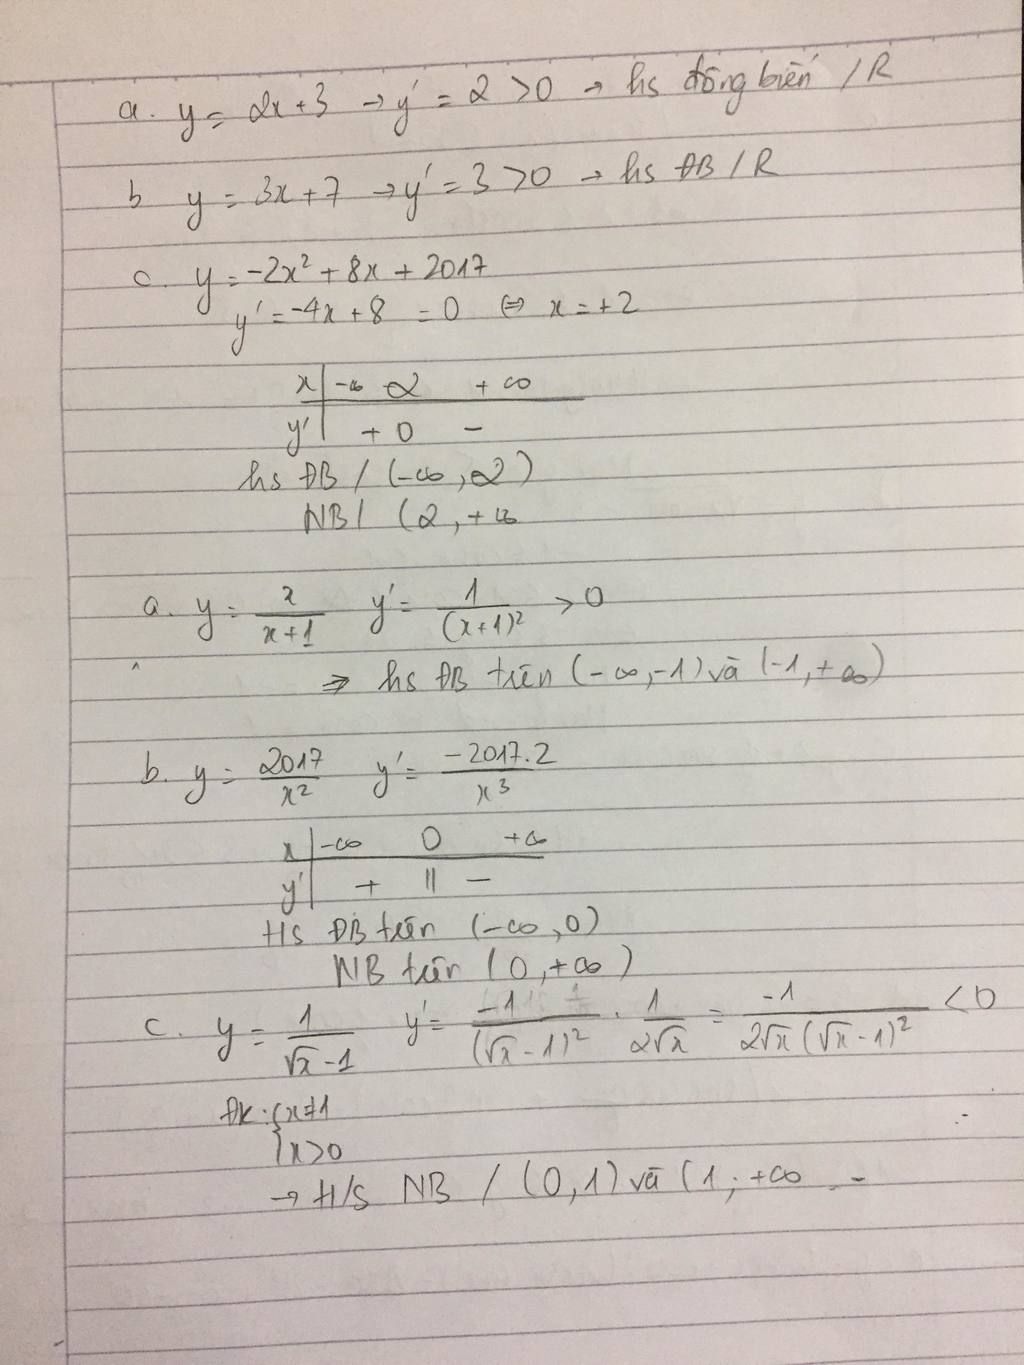 a. y = 2x+3 → y' = 2 >0 → hs đồng biến /R
b y = 3x+7 → y' = 3 >0 → hs ĐB /R
c. y = -2x² + 8x + 2017
y' = -4x + 8 = 0 ⇔ x = +2
x | -∞ 2 +∞
y' | + 0 -
hs ĐB / (-∞, 2)
NB / (2, +∞
a. y = x/(x+1) y' = 1/(x+1)² > 0
⇒ hs ĐB trên (-∞, -1) và (-1, +∞)
b. y = 2017/x² y' = -2017.2/x³
x | -∞ 0 +∞
y' | + || -
HS ĐB trên (-∞, 0)
NB trên (0, +∞)
c. y = 1/(√x - 1) y' = -1/(√x - 1)² . 1/(2√x) = -1/(2√x (√x - 1)²) < 0
ĐK: { x≠1
x>0
→ H/S NB / (0, 1) và (1; +∞